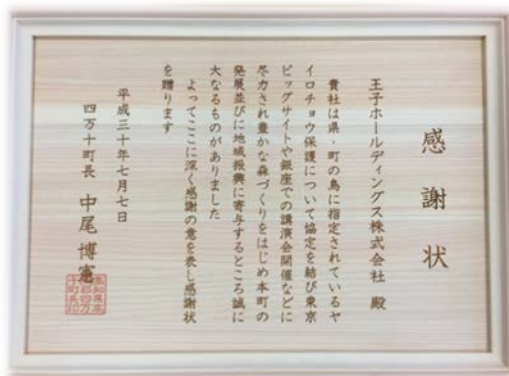 感謝状
王子ホールディングス株式会社 殿
貴社は県・町の鳥に指定されているヤ
イロチョウ保護について協定を結び東京
ビッグサイトや銀座での講演会開催などに
尽力され豊かな森づくりをはじめ本町の
発展並びに地域振興に寄与するところ誠に
大なるものがありました
よってここに深く感謝の意を表し感謝状
を贈ります
平成三十年七月七日
四万十町長 中尾博憲